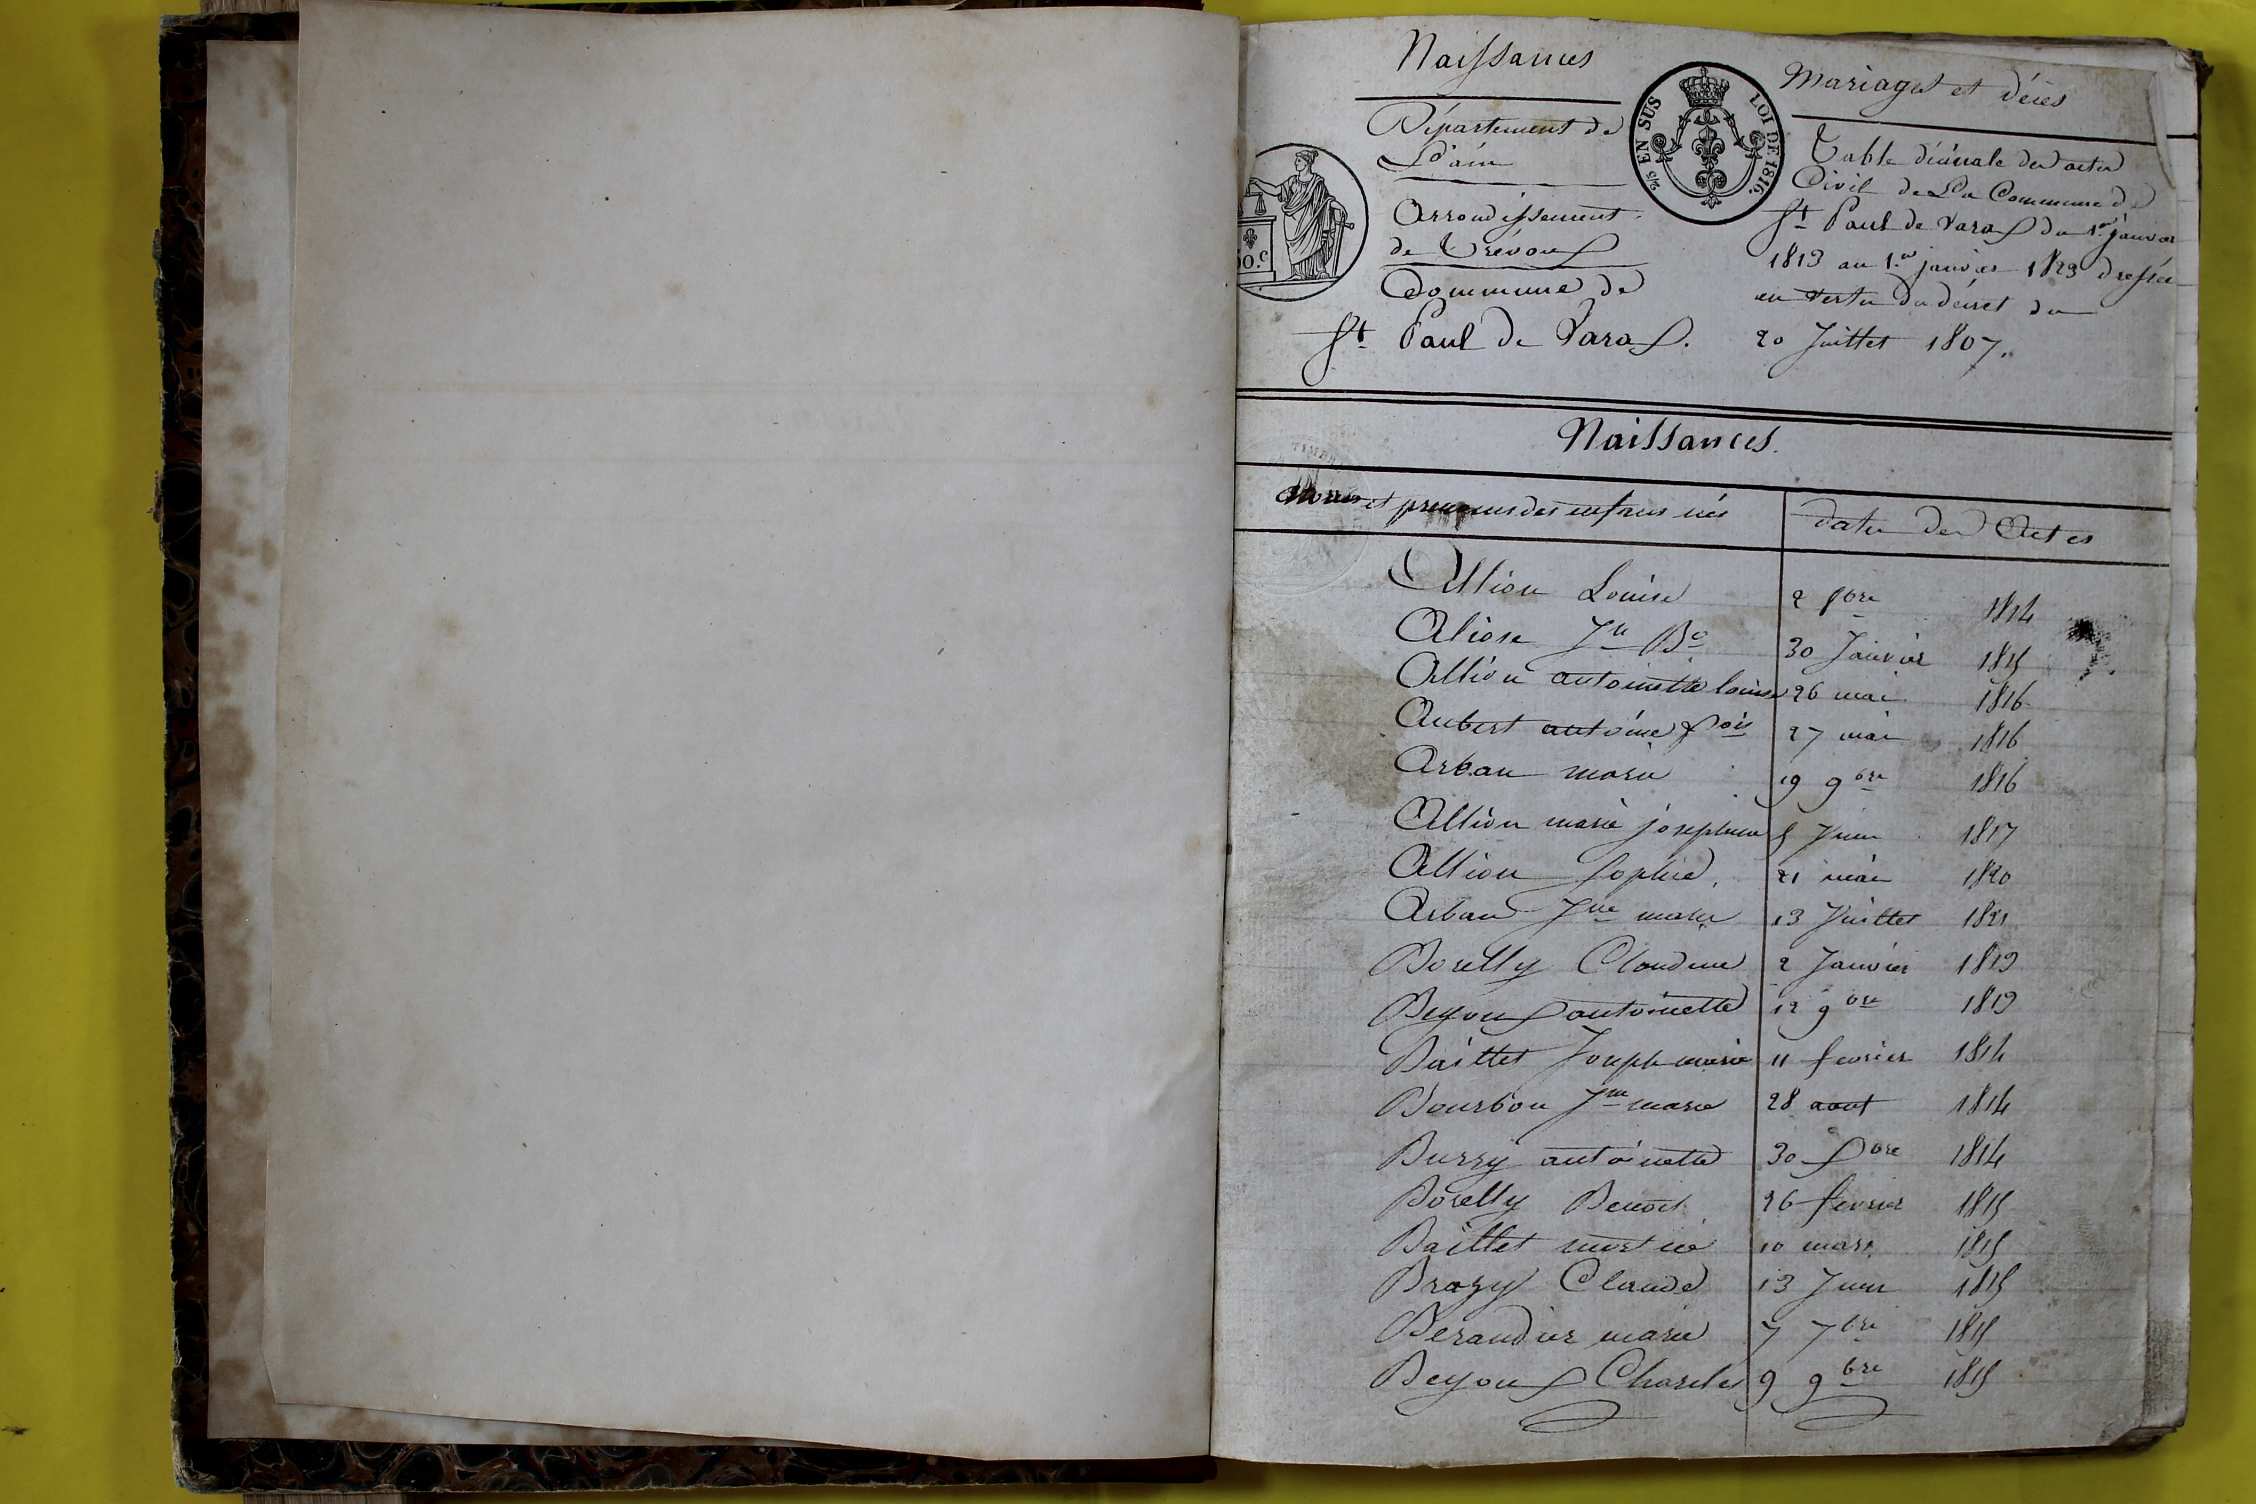 Naissances
Mariages et décès
2/5 EN SUS
LOI DE 1816.
Département de
L'ain
Arrondissement
de Trévoux
Commune de
St Paul de Varax.
Table décénale des actes
Civil de La Commune de
St Paul de Varax du 1er janvier
1813 au 1er janvier 1823 dressée
en vertu du décret du
20 Juillet 1807.
00.c
Naissances.
TIMBRE
Noms et prenoms des enfans nés
dates des Actes
Allion Louise 2 8bre 1814
Jn Be 30 Janvier 1815
Allion antoinette louise 26 mai 1816
Aubert antoine fois 27 mai 1816
Arban marie 19 9bre 1816
Allion marie josephine 5 Juin 1817
Allion Sophie 21 mai 1820
Arban Jne marie 13 Juillet 1821
Borelly Claudine 2 Janvier 1813
Beyoux antoinette 12 9bre 1813
Baillet Joseph marie 11 fevrier 1814
Bourbon Jne marie 28 aout 1814
Buzzy antoinette 30 8bre 1814
Borelly Benoit 26 fevrier 1815
Baillet mort né 10 mars 1815
Brazy Claude 13 Juin 1815
Beraudier marie 7 7bre 1815
Beyoux Charles 9 9bre 1815